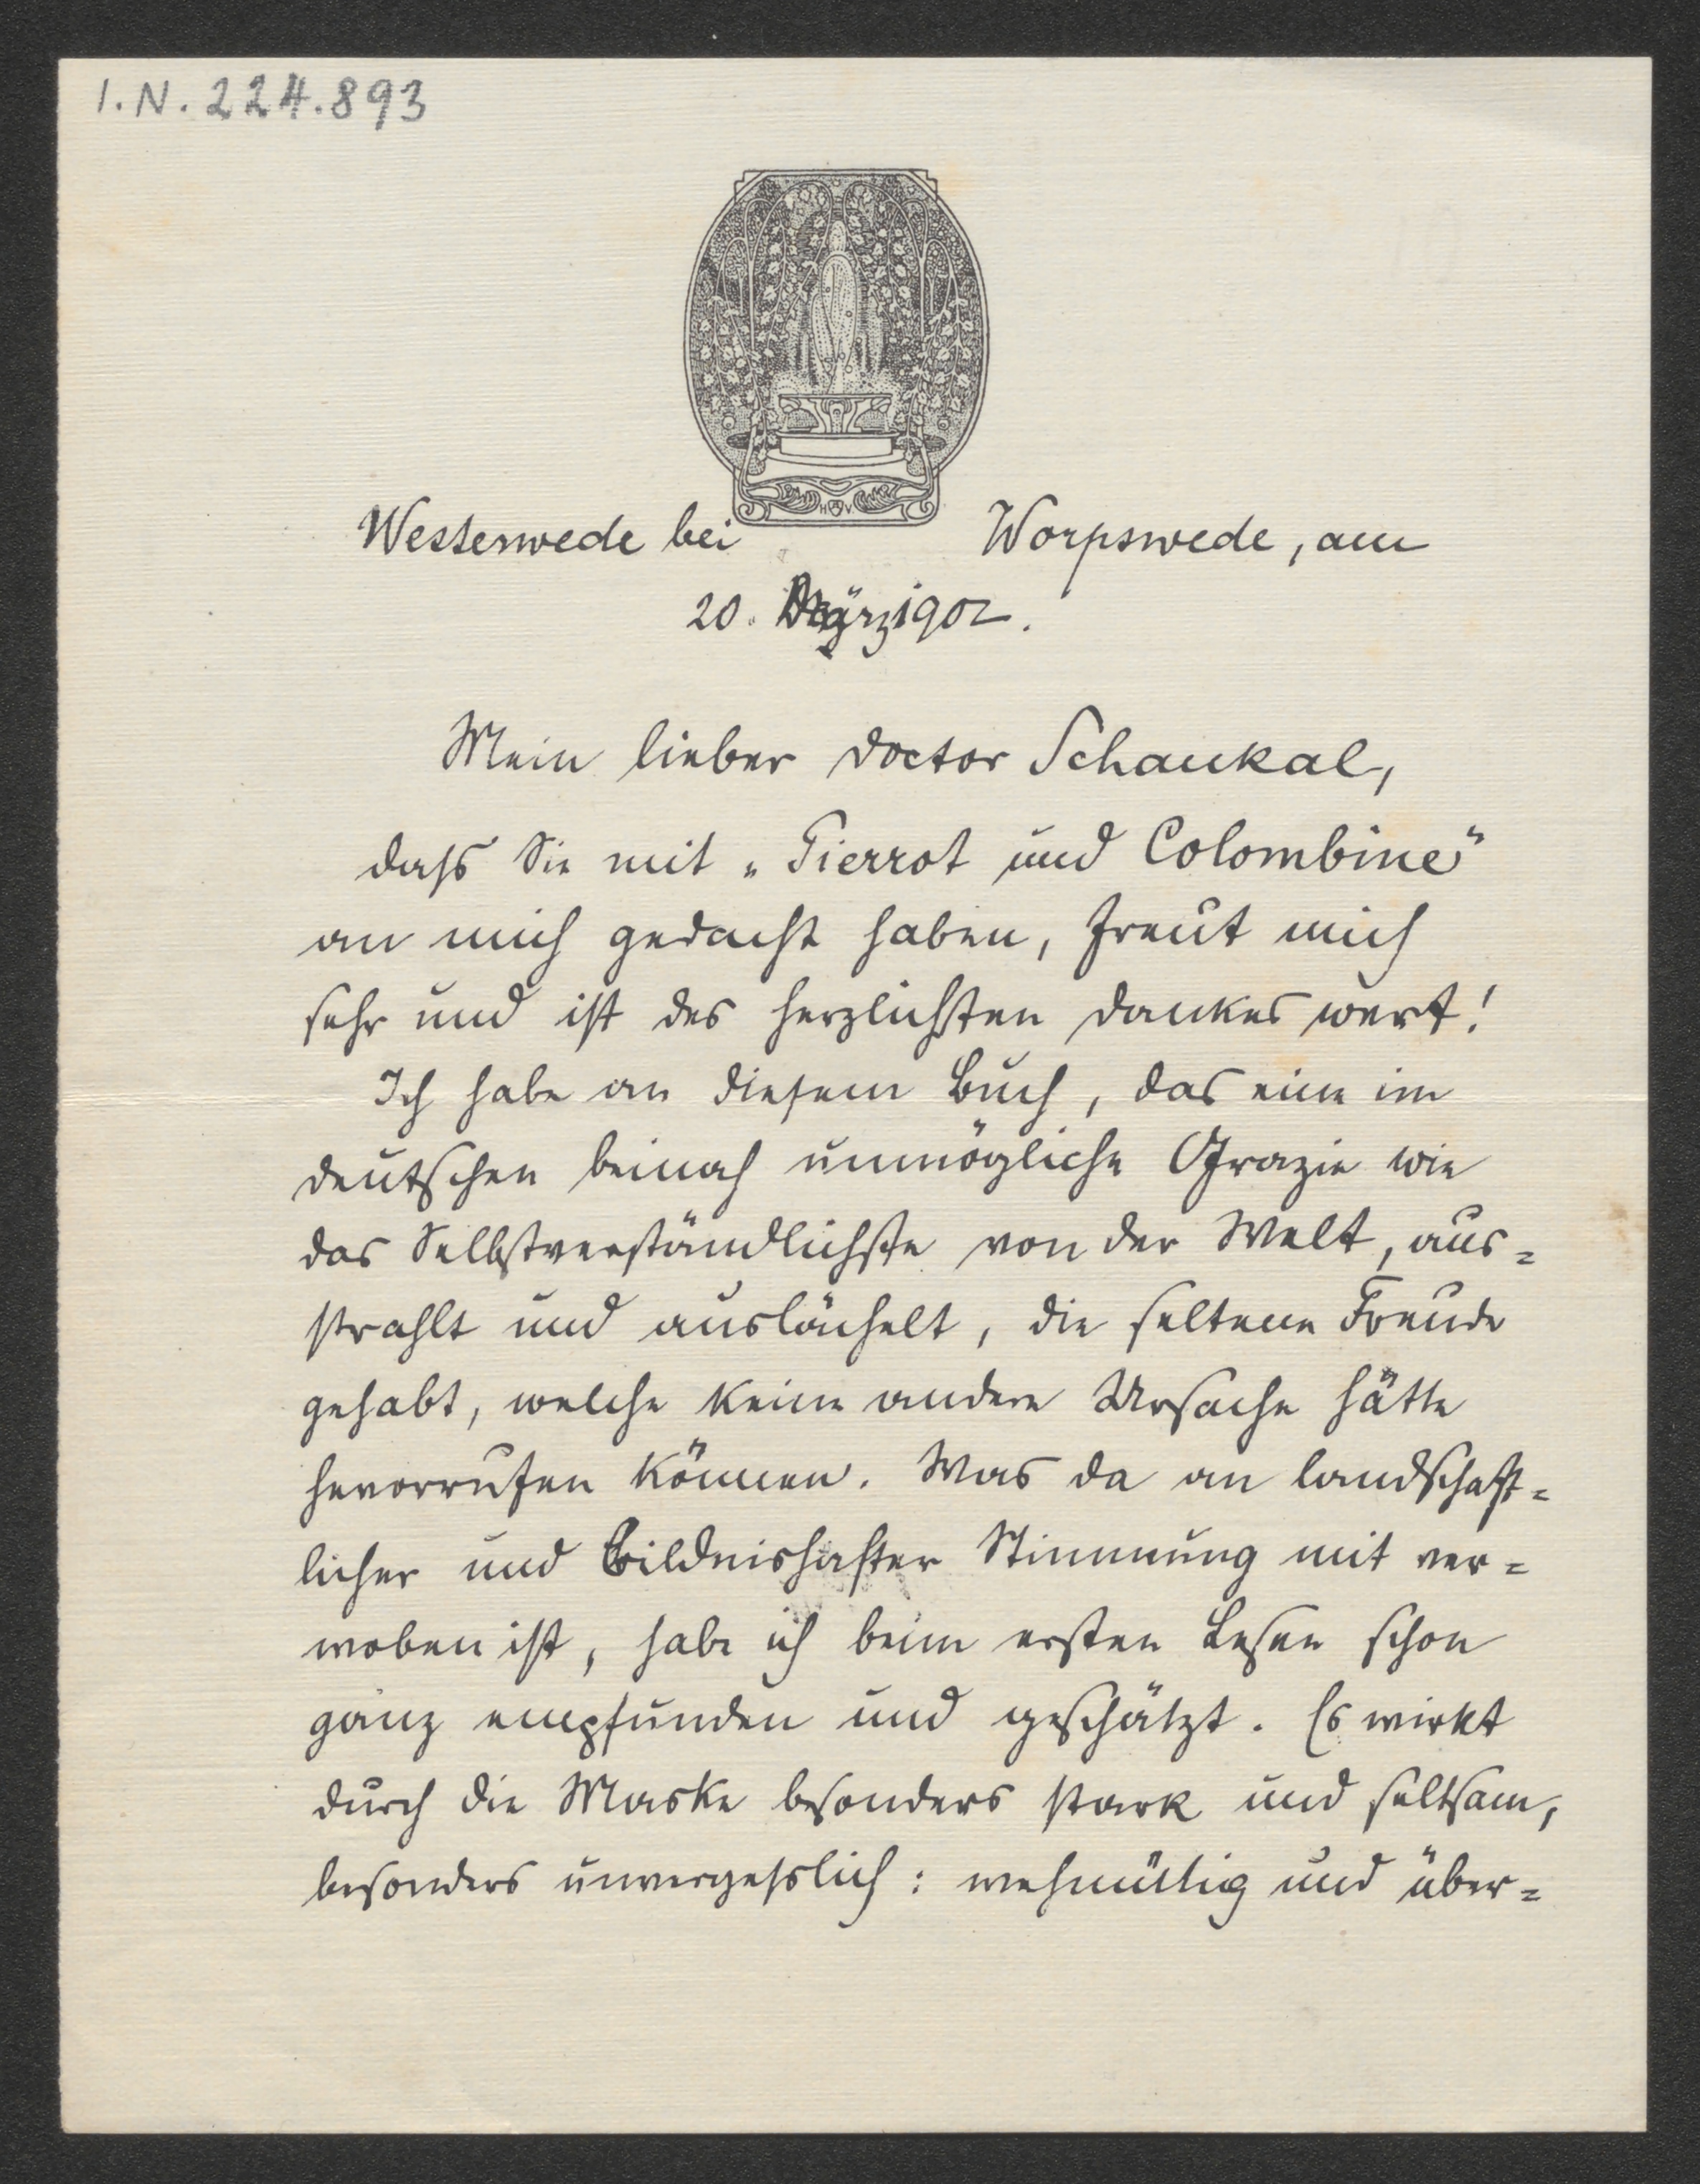 I.N. 224.893
HV
Westerwede bei Worpswede, am
20. März 1902.
Mein lieber Doctor Schaukal,
dass Sie mit „Pierrot und Colombine"
an mich gedacht haben, freut mich
sehr und ist des herzlichsten Dankes wert!
Ich habe an diesem Buch, das eine im
deutschen beinah unmögliche Grazie wie
das Selbstverständlichste von der Welt, aus=
strahlt und auslächelt, die seltene Freude
gehabt, welche keine andere Ursache hätte
hervorrufen können. Was da an landschaft=
licher und Bildnishafter Stimmung mit ver=
woben ist, habe ich beim ersten Lesen schon
ganz empfunden und geschätzt. Es wirkt
durch die Maske besonders stark und seltsam,
besonders unvergesslich: wehmüttig und über=